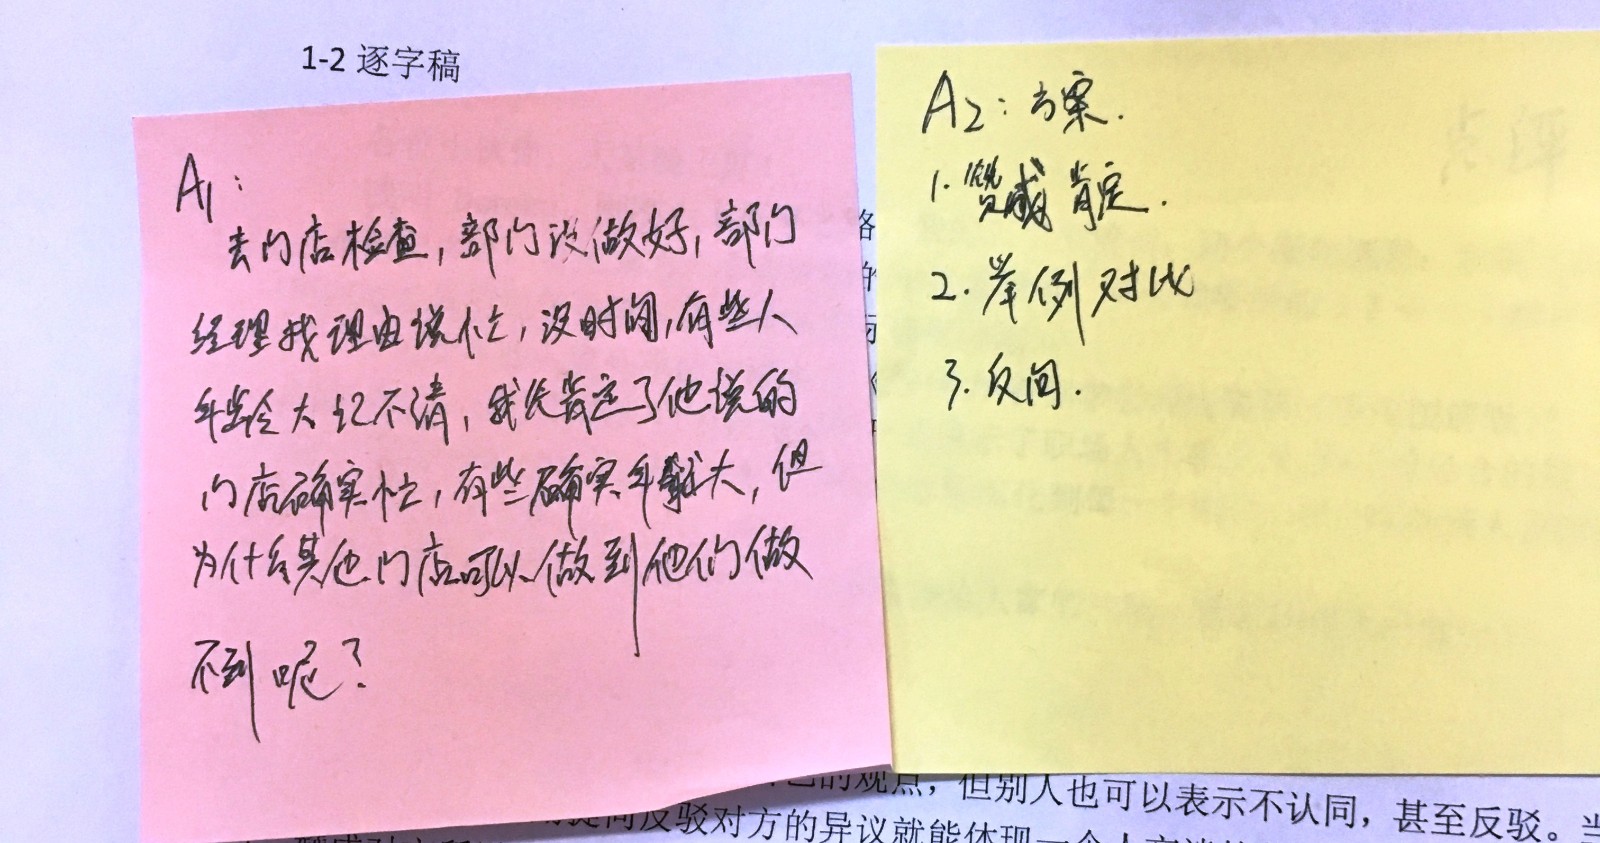 1-2 逐字稿
A1:
去门店检查,部门没做好,部门
经理找理由说忙,没时间,有些人
年龄大记不清,我先肯定了他说的
门店确实忙,有些确实年龄大,但
为什么其他门店可以做到他们做
不到呢?
A2:方案.
1.赞成 肯定.
2.举例 对比
3.反问.
点评
的观点,但别人也可以表示不认同,甚至反驳。当
反驳对方的异议就能体现一个人